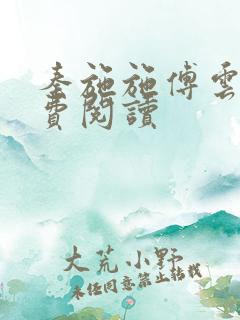 秦施施傅雲
費閱讀
大荒小野
未经同意禁止转载